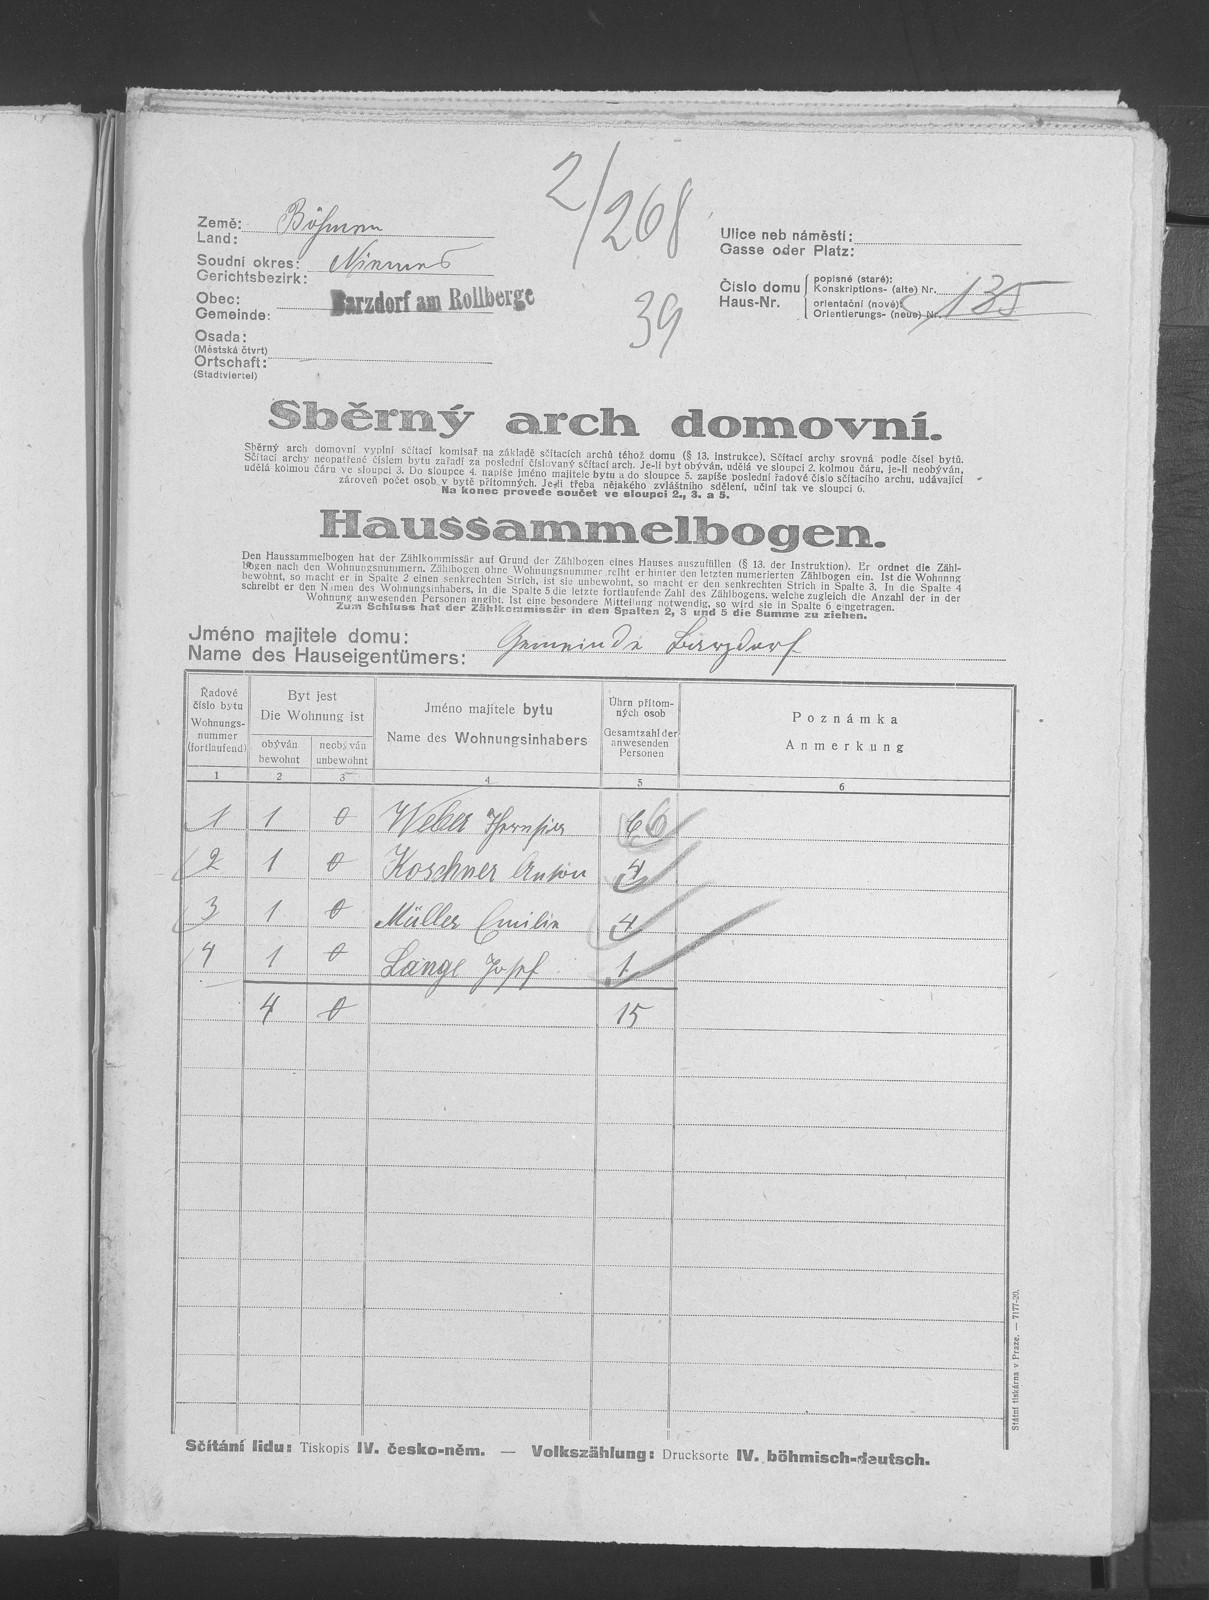 2/268
39
Země:
Land: Böhmen
Soudní okres:
Gerichtsbezirk: Niemes
Obec:
Gemeinde: Barzdorf am Rollberge
Osada:
(Městská čtvrt)
Ortschaft:
(Stadtviertel)
Ulice neb náměstí:
Gasse oder Platz:
Číslo domu
Haus-Nr.
popisné (staré):
Konskriptions- (alte) Nr. 135
orientační (nové):
Orientierungs- (neue) Nr.
Sběrný arch domovní.
Sběrný arch domovní vyplní sčítací komisař na základě sčítacích archů téhož domu (§ 13. Instrukce). Sčítací archy srovná podle čísel bytů.
Sčítací archy neopatřené číslem bytu zařadí za poslední číslovaný sčítací arch. Je-li byt obýván, udělá ve sloupci 2. kolmou čáru, je-li neobýván,
udělá kolmou čáru ve sloupci 3. Do sloupce 4. napíše jméno majitele bytu a do sloupce 5. zapíše poslední řadové číslo sčítacího archu, udávající
zároveň počet osob v bytě přítomných. Je-li třeba nějakého zvláštního sdělení, učiní tak ve sloupci 6.
Na konec provede součet ve sloupci 2., 3. a 5.
Haussammelbogen.
Den Haussammelbogen hat der Zählkommissär auf Grund der Zählbogen eines Hauses auszufüllen (§ 13. der Instruktion). Er ordnet die Zähl-
bogen nach den Wohnungsnummern. Zählbogen ohne Wohnungsnummer reiht er hinter den letzten numerierten Zählbogen ein. Ist die Wohnung
bewohnt, so macht er in Spalte 2 einen senkrechten Strich, ist sie unbewohnt, so macht er den senkrechten Strich in Spalte 3. In die Spalte 4
schreibt er den Namen des Wohnungsinhabers, in die Spalte 5 die letzte fortlaufende Zahl des Zählbogens, welche zugleich die Anzahl der in der
Wohnung anwesenden Personen angibt. Ist eine besondere Mitteilung notwendig, so wird sie in Spalte 6 eingetragen.
Zum Schluss hat der Zählkommissär in den Spalten 2, 3 und 5 die Summe zu ziehen.
Jméno majitele domu:
Name des Hauseigentümers: Gemeinde Barzdorf
Řadové číslo bytu
Wohnungs-nummer (fortlaufend)
Byt jest
Die Wohnung ist
obýván
bewohnt
neobýván
unbewohnt
Jméno majitele bytu
Name des Wohnungsinhabers
Úhrn přítom-ných osob
Gesamtzahl der anwesenden Personen
Poznámka
Anmerkung
1 2 3 4 5 6
1 1 0 Weber 6
2 1 0 Koschner Anton 4
3 1 0 Müller Emilie 4
4 1 0 Lange Josef 1
4 0 15
Státní tiskárna v Praze. — 7177-20.
Sčítání lidu: Tiskopis IV. česko-něm. — Volkszählung: Drucksorte IV. böhmisch-deutsch.